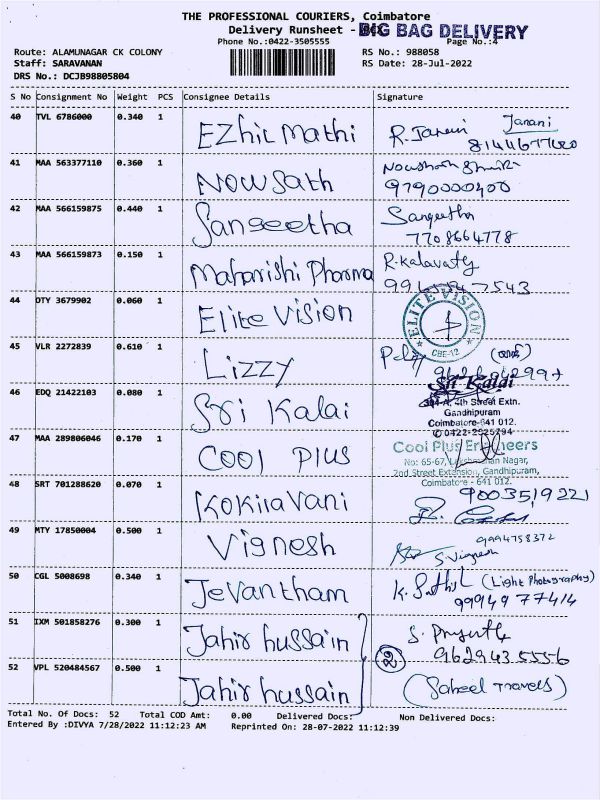 THE PROFESSIONAL COURIERS, Coimbatore
Delivery Runsheet - BIG BAG DELIVERY
Phone No.:0422-3505555 Page No.:4
Route: ALAMUNAGAR CK COLONY RS No.: 988058
Staff: SARAVANAN RS Date: 28-Jul-2022
DRS No.: DCJB98805804
S No Consignment No Weight PCS Consignee Details Signature
40 TVL 6786000 0.340 1 Ezhil Mathi R. Janani Janani
41 MAA 563377110 0.360 1 Nowsath 9790000400
42 MAA 566159875 0.440 1 Sangeetha Sangeetha
7708664778
43 MAA 566159873 0.150 1 Maharishi Pharma R. Kalavathy
44 OTY 3679902 0.060 1 Elite Vision ELITE VISION CBE-12
45 VLR 2272839 0.610 1 Lizzy
46 EDQ 21422103 0.080 1 Sri Kalai Sri Kalai
4th Street Extn.
Gandhipuram
Coimbatore-641 012.
47 MAA 289806046 0.170 1 Cool Plus Cool Plus Engineers
No: 65-67, Lakshmanan Nagar,
2nd Street Extension, Gandhipuram,
Coimbatore - 641 012.
48 SRT 701288620 0.070 1 Kokilavani 9003519221
49 MTY 17850004 0.500 1 Vignesh 9994758372
S. Vignesh
50 CGL 5008698 0.340 1 Jevantham K. Sathis (Light Photography)
9994977414
51 IXM 501858276 0.300 1 Jahir hussain
9629435556
2
52 VPL 520484567 0.500 1 Jahir hussain (Saheel Travels)
Total No. Of Docs: 52 Total COD Amt: 0.00 Delivered Docs: Non Delivered Docs:
Entered By :DIVYA 7/28/2022 11:12:23 AM Reprinted On: 28-07-2022 11:12:39